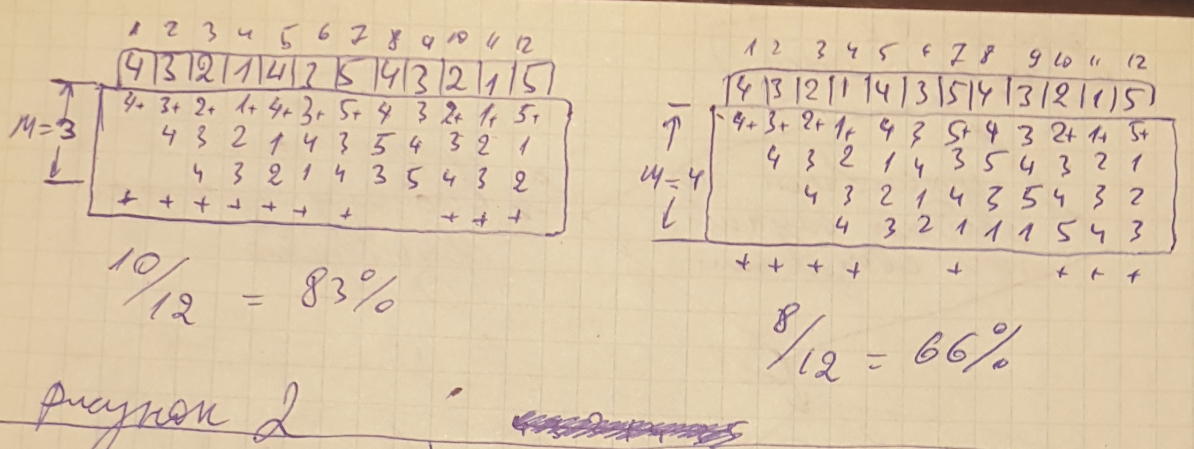 1 2 3 4 5 6 7 8 9 10 11 12
4 3 2 1 4 3 5 4 3 2 1 5
M=3
4+ 3+ 2+ 1+ 4+ 3+ 5+ 4 3 2+ 1+ 5+
4 3 2 1 4 3 5 4 3 2 1
4 3 2 1 4 3 5 4 3 2
+ + + + + + + + + +
10/12 = 83%
1 2 3 4 5 6 7 8 9 10 11 12
4 3 2 1 4 3 5 4 3 2 1 5
M=4
4+ 3+ 2+ 1+ 4 3 5+ 4 3 2+ 1+ 5+
4 3 2 1 4 3 5 4 3 2 1
4 3 2 1 4 3 5 4 3 2
4 3 2 1 1 1 5 4 3
+ + + + + + + +
8/12 = 66%
рисунок 2